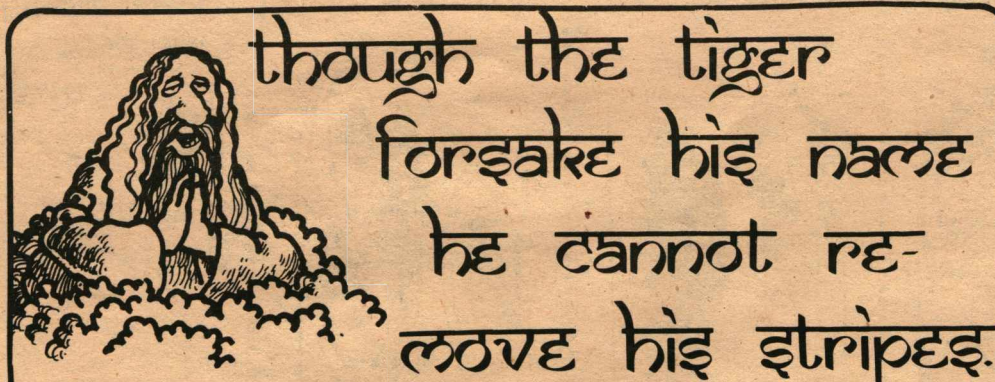 though the tiger
forsake his name
he cannot re-
move his stripes.